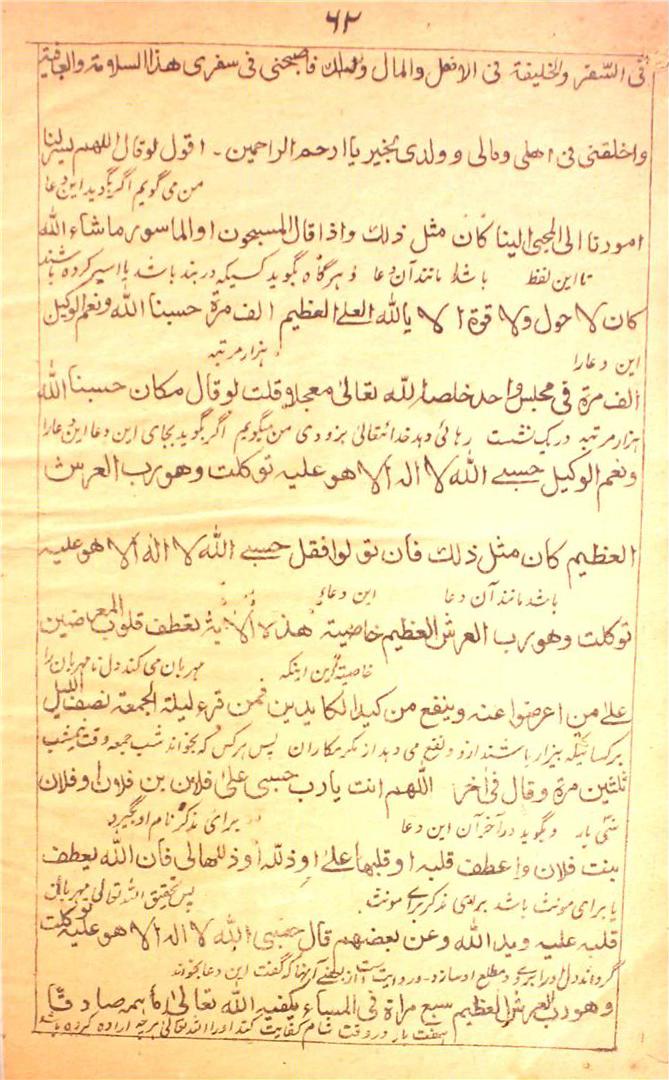 ۶۲
فی السفر والخلیفة فی الاهل والمال والولد فاصبحنی فی سفری هذا السلامة والعافیة
واخلفنی فی اهلی ومالی و ولدی بخیر یا ارحم الراحمین۔ اقول لو قال اللهم یسر لنا
من می گویم اگر بگوید این دعا
امورنا الی المجئ الینا کان مثل ذلک واذا قال المسبحون او الماسور ماشاء الله
تا این لفظ باشد مانند آن دعا و هرگاه بگوید کسیکه در بند باشد یا اسیر کرده باشند
کان لا حول ولا قوة الا بالله العلی العظیم الف مرة حسبنا الله ونعم الوکیل
این دعارا هزار مرتبه
الف مرة فی مجلس واحد خلصه الله تعالیٰ معجلا وقلت لو قال مکان حسبنا الله
هزار مرتبه در یک نشست رهائی دهد خدا تعالیٰ بزودی من میگویم اگر بگوید بجای این دعا این دعارا
ونعم الوکیل حسبی الله لا اله الا هو علیه توکلت وهو رب العرش
العظیم کان مثل ذلک فان تولوا فقل حسبی الله لا اله الا هو علیه
باشد مانند آن دعا این دعاء
توکلت وهو رب العرش العظیم خاصیة هذه الایة تعطف قلوب المعرضین
خاصیت این اینکه مهربان می کند دل نا مهربان را
علی من اعرضوا عنه وینفع من کید الکایدین فمن قرء لیلة الجمعة نصف اللیل
بر کسانیکه بیزار باشند ازو و نفع می دهد از مکر مکاران پس هر کس که بخواند شب جمعه وقت نیم شب
ثلثین مرة وقال فی اخر اللهم انت یا رب حسبی علیٰ فلان بن فلان او فلان
سی بار و بگوید در آخر آن این دعا برای مذکر نام او بگیرد
بنت فلان واعطف قلبه او قلبها علی او ذلله او ذللها لی فان الله یعطف
یا برای مونث باشد برای مذکر برای مونث پس تحقیق الله تعالیٰ مهربان
قلبه علیه ویذ الله وعن بعضهم قال حسبی الله لا اله الا هو علیه توکلت
گرداند دل او را برو و مطلع او سازد۔ و روایت است از بعضی آنها که گفت این دعا بخواند
وهو رب العرش العظیم سبع مراة فی المساء یکفیه الله تعالیٰ ما همه صادقا
هفت بار در وقت شام کفایت کند او را الله تعالیٰ هر چه اراده کرده باشد